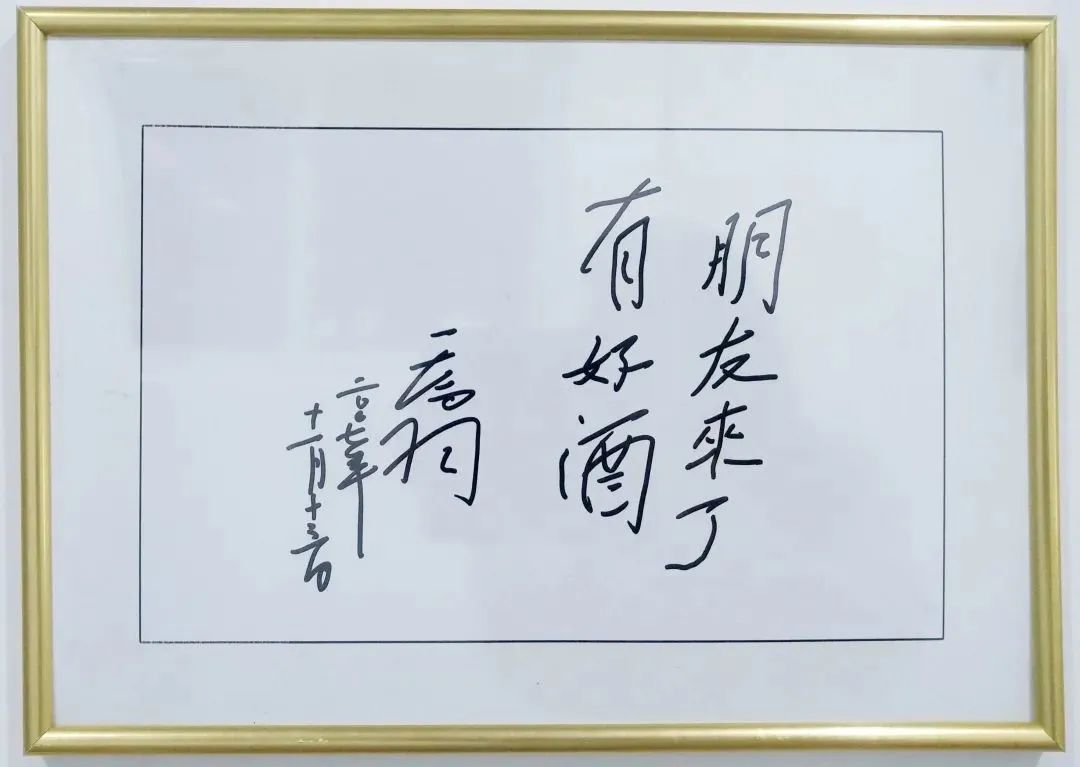 朋友來了
有好酒
喬羽
二〇〇七年
十一月十三日